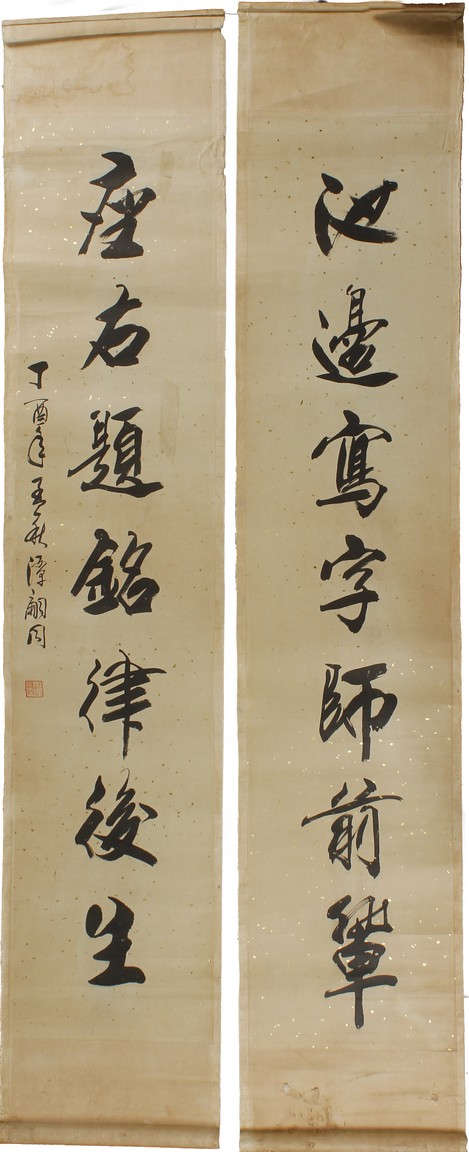 池邊寫字師前輩
座右題銘律後生
丁酉年王秋譚嗣同